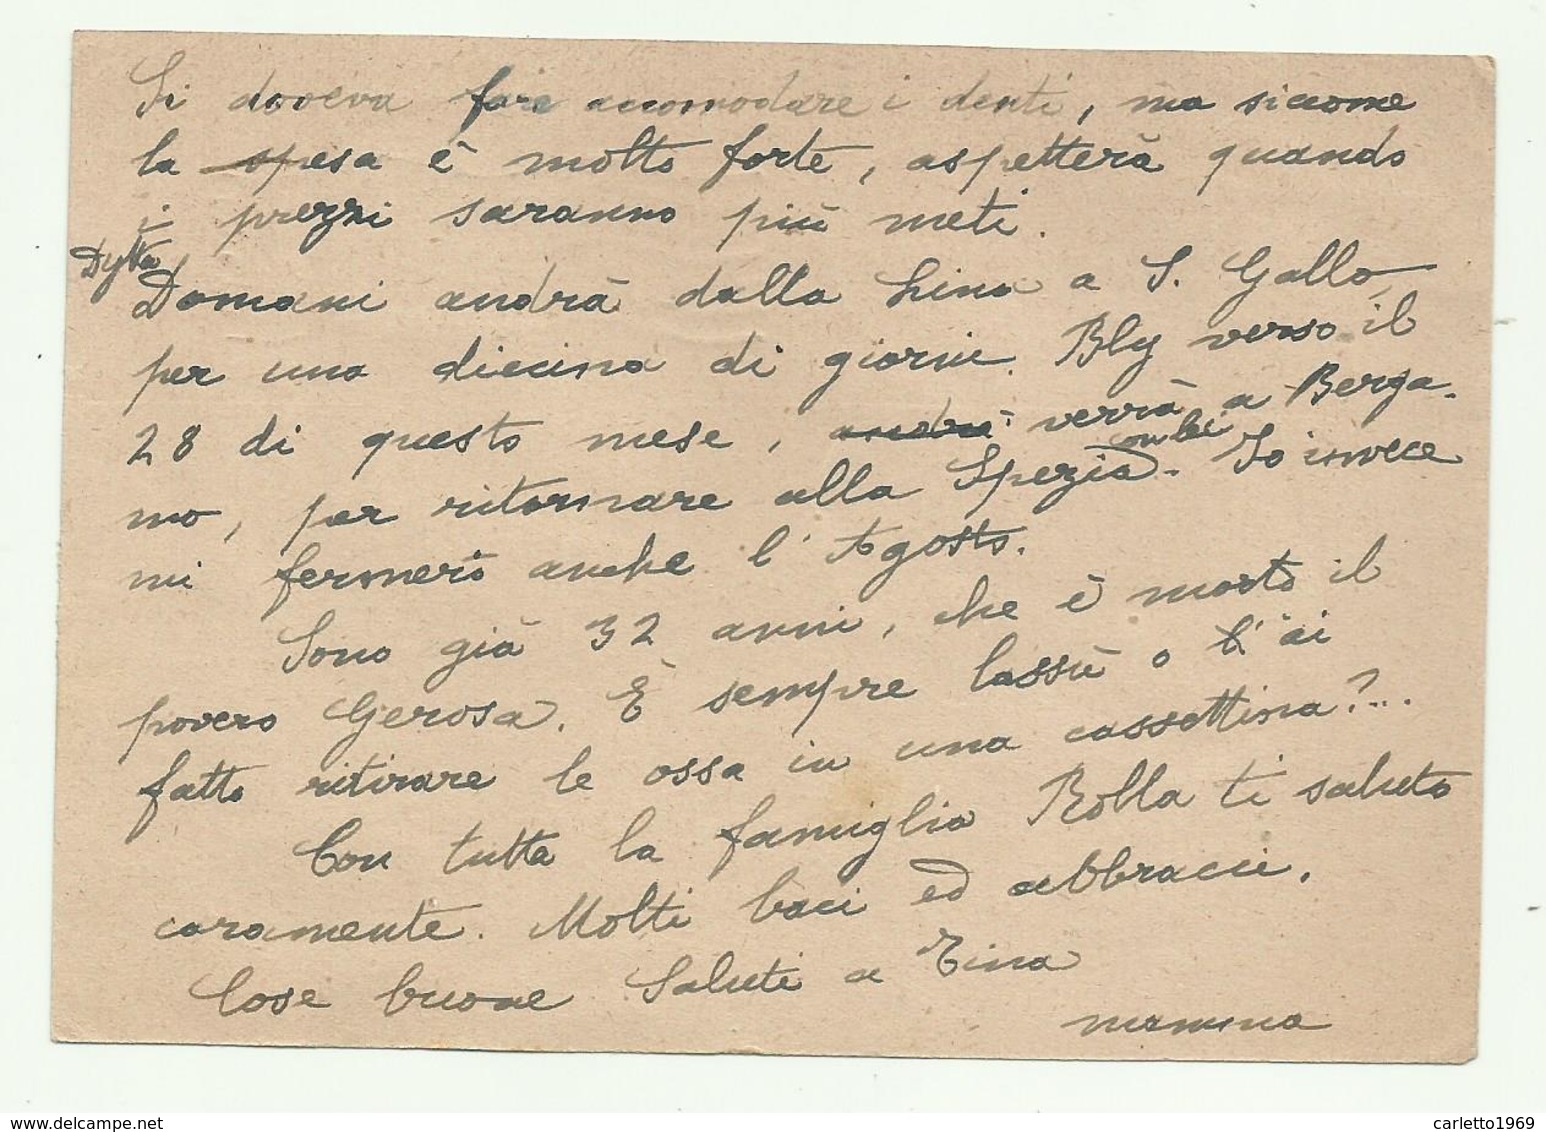 Si doveva fare accomodare i denti, ma siccome
la spesa è molto forte, aspetterà quando
i prezzi saranno più meti.
Dytta
Domani andrà dalla Lina a S. Gallo,
per una diecina di giorni. Bly verso il
28 di questo mese, andrà verrà a Berga-
mo, per ritornare alla Spezia con lei. Io invece
mi fermerò anche l'Agosto.
Sono già 32 anni, che è morto il
povero Gerosa. È sempre lassù o l'ai
fatto ritirare le ossa in una cassettina?...
Con tutta la famiglia Rolla ti saluto
caramente. Molti baci ed abbracci.
Cose buone Saluti a Tina
mamma
carletto1969